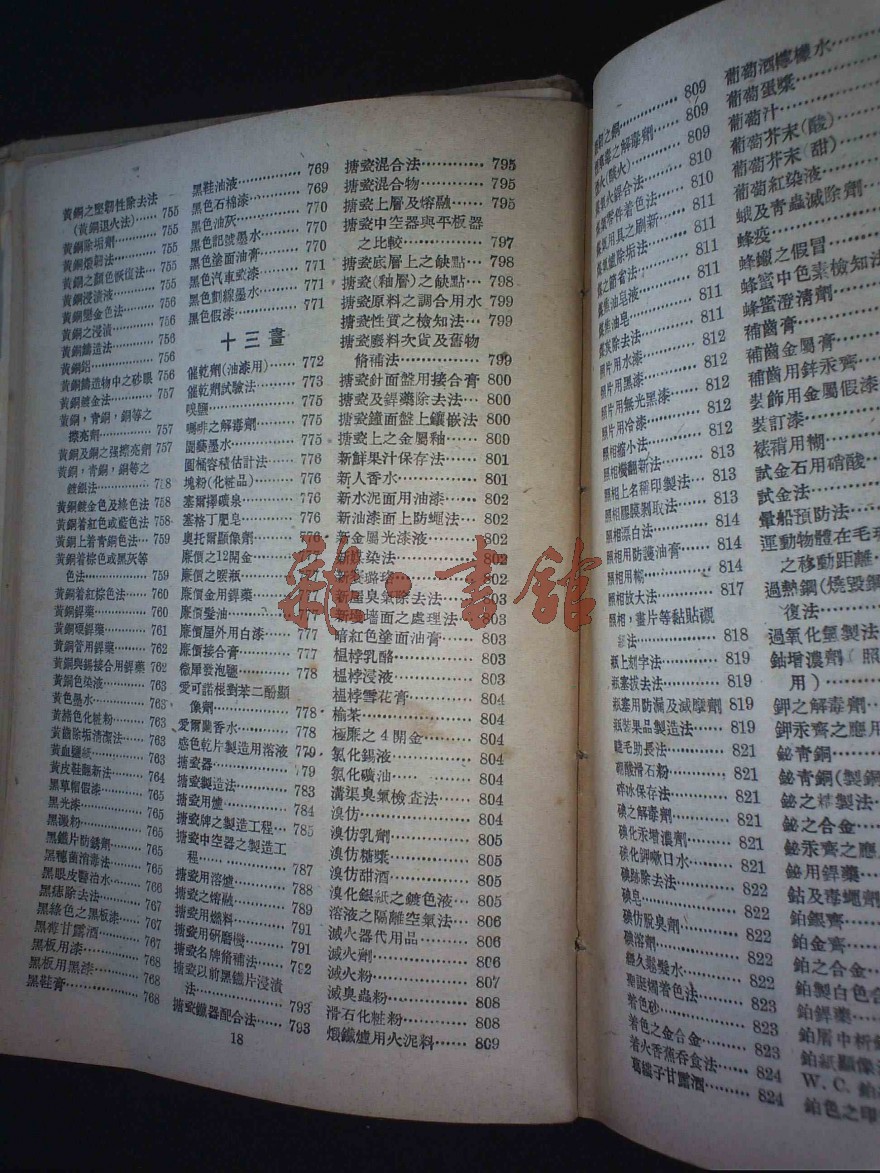 黃銅之堅韌性除去法
(黃銅退火法)…… 755
黃銅除垢劑…… 755
黃銅煅韌法…… 755
黃銅之顏色恢復法… 755
黃銅浸漬液…… 756
黃銅變金色法…… 756
黃銅之浸漬…… 756
黃銅鑄造法…… 756
黃銅鋁…… 756
黃銅鑄造物中之砂眼 756
黃銅鍍金法…… 757
黃銅，青銅，銅等之
擦亮劑…… 757
黃銅及銅之強擦亮劑 757
黃銅，青銅，銅等之
鍍銀法…… 758
黃銅鍍金色及綠色法 758
黃銅着紅色或藍色法 758
黃銅上着青銅色法… 759
黃銅着棕色或黑灰等
色法…… 759
黃銅着紅棕色法…… 760
黃銅銲藥…… 760
黃銅硬銲藥…… 761
黃銅管用銲藥…… 762
黃銅與錫接合用銲藥 762
黃銅色染液…… 763
黃色墨水…… 763
黃赭色化粧粉…… 763
黃鐵除垢清潔法…… 763
黃血鹽紙…… 763
黃皮鞋翻新法…… 764
黑草帽假漆…… 764
黑光漆…… 764
黑澱粉…… 765
黑鐵片防銹劑…… 765
黑穗菌消毒法…… 765
黑眼皮醫治水…… 766
黑痣除去法…… 766
黑綠色之黑板漆…… 767
黑莓甘露酒…… 767
黑板用漆…… 768
黑板用黑漆…… 768
黑鞋膏…… 768
黑鞋油液…… 769
黑色石棉漆…… 769
黑色油灰…… 770
黑色記號墨水…… 770
黑色塗面油膏…… 770
黑色汽車瓷漆…… 771
黑色劃線墨水…… 771
黑色假漆…… 771
十三畫
催乾劑(油漆用)…… 772
催乾劑試驗法…… 773
嗅鹽…… 775
嗎啡之解毒劑…… 775
園藝墨水…… 775
圓桶容積估計法…… 776
塊粉(化粧品)…… 776
塞爾擇礦泉…… 776
塞格丁肥皂…… 776
奧托爾顯像劑…… 776
廉價之12開金…… 776
廉價之暖瓶……
廉價金用銲藥……
廉價髮油……
廉價屋外用白漆…… 777
廉價接合膏…… 777
微單發泡鹽…… 778
愛可諾根對苯二酚顯
像劑…… 778
愛爾蘭香水…… 778
惑色乾片製造用溶液 779
搪瓷器…… 79
搪瓷製造法…… 783
搪瓷用爐…… 784
搪瓷牌之製造工程… 785
搪瓷中空器之製造工
程…… 787
搪瓷用溶爐…… 788
搪瓷之熔融…… 789
搪瓷用燃料…… 791
搪瓷用研磨機…… 791
搪瓷名牌脩補法…… 792
搪瓷以前黑鐵片浸漬
法…… 793
搪瓷鐵器配合法…… 793
18
搪瓷混合法…… 795
搪瓷混合物…… 795
搪瓷上層及熔融…… 795
搪瓷中空器與平板器
之比較…… 797
搪瓷底層上之缺點… 798
搪瓷(釉層)之缺點… 798
搪瓷原料之調合用水 799
搪瓷性質之檢知法… 799
搪瓷廢料次貨及舊物
脩補法…… 799
搪瓷針面盤用接合膏 800
搪瓷及銲藥除去法… 800
搪瓷鐘面盤上鑲嵌法 800
搪瓷上之金屬釉…… 800
新鮮果汁保存法…… 801
新人香水…… 801
新水泥面用油漆…… 802
新油漆面上防蠅法… 802
新金屬光漆液…… 802
新 染法…… 802
新瓷 …… 802
新屋臭氣除去法…… 803
新 墻面之處理法… 803
暗紅色塗面油膏…… 803
榅桲乳酪…… 803
榅桲浸液…… 803
榅桲雪花膏…… 804
榆茶…… 804
極廉之4開金…… 804
氯化錫液…… 804
氯化礦油…… 804
溝渠臭氣檢查法…… 804
溴仿…… 805
溴仿乳劑…… 805
溴仿糖漿…… 805
溴仿甜酒…… 805
溴化銀紙之鍍色液… 805
溶液之隔離空氣法… 806
滅火器代用品…… 806
滅火劑…… 806
滅火粉…… 807
滅臭蟲粉…… 808
滑石化粧粉…… 808
煅鐵爐用火泥料…… 809
龍一書館
之鍋…… 809
毒之解毒劑…… 809
火(熄火)…… 809
火鋅合法…… 810
零件着色法…… 810
用具之刷新…… 810
爐除垢法…… 811
之節省法…… 811
油皂液…… 811
油皂…… 811
炭除去法…… 811
照片用水漆…… 812
照片用黑漆…… 812
照片用無光黑漆…… 812
照片用冷漆…… 812
照相縮小法…… 812
照相機翻新法…… 813
照相上名稱印製法… 813
照相膠膜剝取法…… 813
照相漂白法…… 814
照相用防護油膏…… 814
照相用糊…… 814
照相放大法…… 817
照相，畫片等黏貼襯
法…… 818
瓶上刻字法…… 819
瓶塞拔去法…… 819
瓶塞用防漏及減摩劑 819
瓶裝果品製造法…… 820
睫毛助長法…… 821
硼酸滑石粉…… 821
碎冰保存法…… 821
碘之解毒劑…… 821
碘化汞增濃劑…… 821
碘化鉀嗽口水…… 821
碘跡除去法…… 822
碘皂…… 822
碘仿脫臭劑…… 822
碘溶劑…… 822
經久鬈髮水…… 822
聖誕燭着色法…… 823
着色砂…… 823
着色之金合金…… 823
着火香蕉吞食法…… 824
葛縷子甘露酒…… 824
葡萄酒檸檬水……
葡萄蛋漿……
葡萄汁……
葡萄芥末(酸)
葡萄芥末(甜)
葡萄紅染液……
蛾及青蟲滅除劑
蜂疫……
蜂蠟之假冒
蜂蜜中色素檢知法
蜂蜜澄清劑……
補齒膏……
補齒金屬膏……
補齒用鋅汞齊……
裝飾用金屬假漆
裝訂漆……
裱褙用糊……
試金石用硝酸……
試金法……
暈船預防法……
運動物體在毛玻
之移動距離
過熱鋼(燒毀鋼
復法……
過氧化氫製法……
鈾增濃劑(照
用)……
鉀之解毒劑……
鉀汞齊之應用
鉍青銅……
鉍青銅(製鋼
鉍之精製法……
鉍之合金……
鉍汞齊之應用
鉍用銲藥……
鈷及毒蠅劑
鉑銀齊……
鉑金齊……
鉑之合金……
鉑製白色合
鉑銲藥……
鉑屑中析
鉑紙顯像
W. C. 鉑
鉑色之印